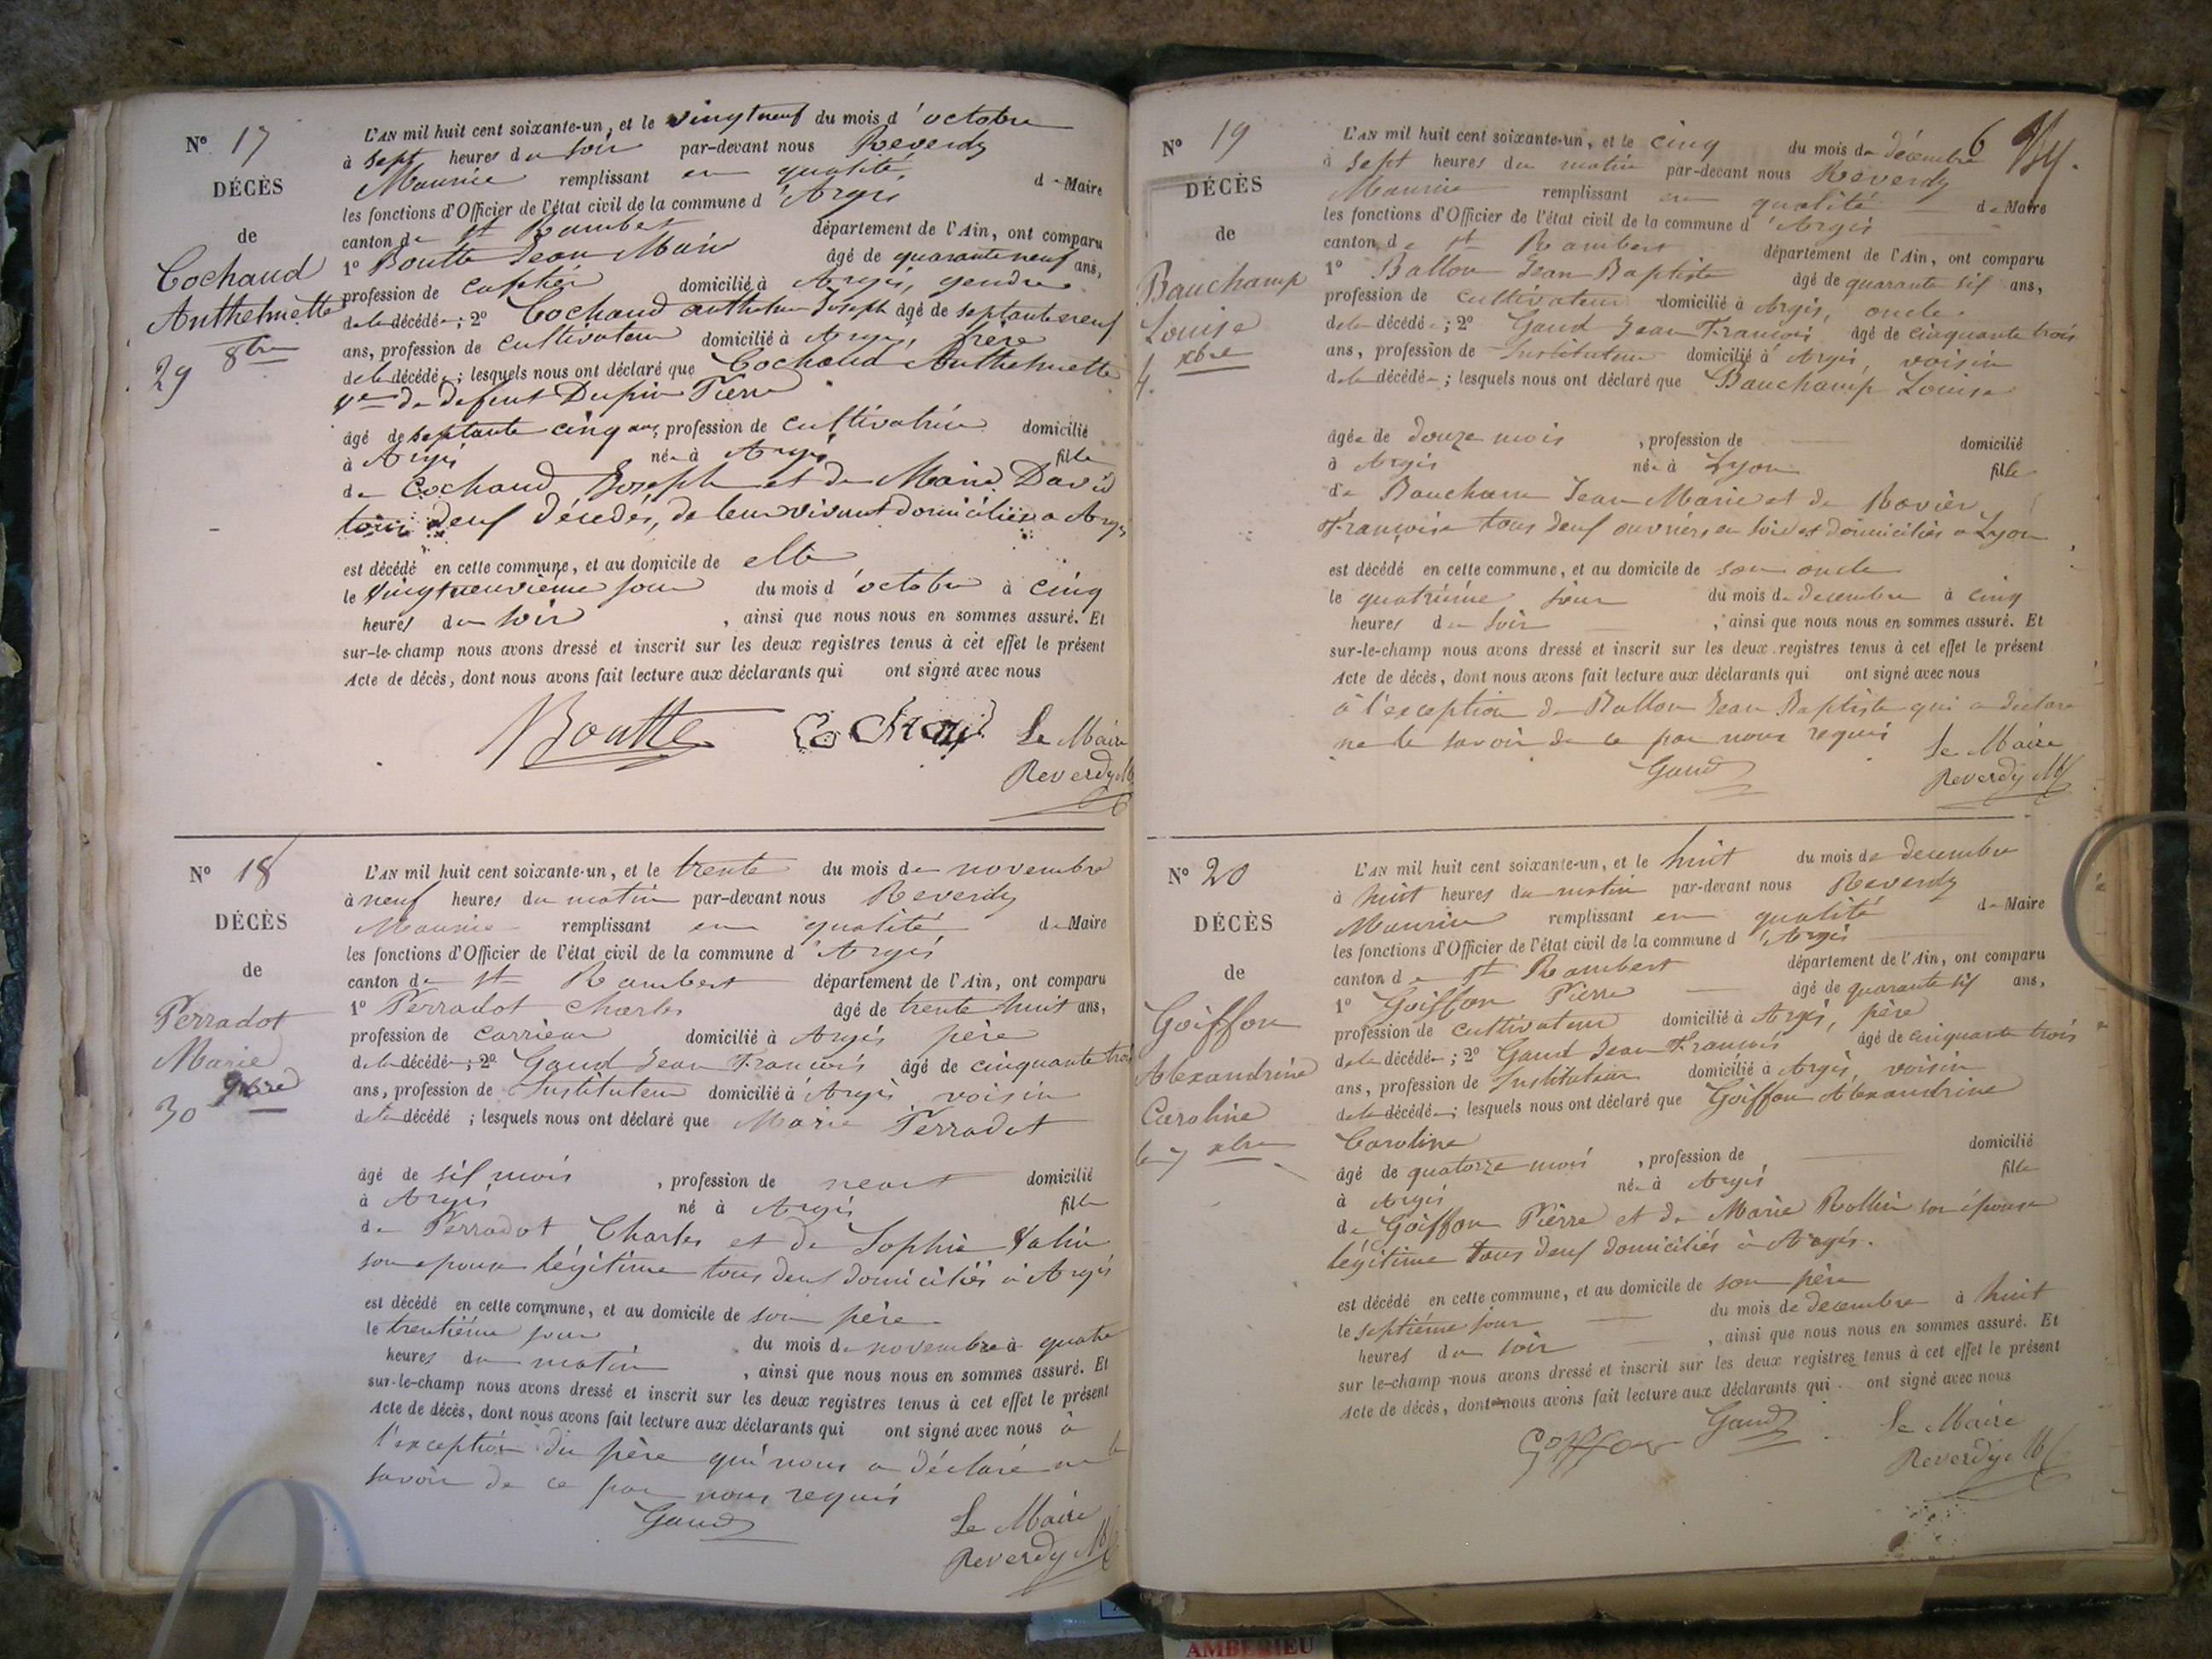 N° 17
DÉCÈS
de
Cochaud
Anthelmette
29 8bre
L'AN mil huit cent soixante-un, et le vingtneuf du mois d'octobre
à sept heures du soir par-devant nous Reverdy
Maurice remplissant en qualité de Maire
les fonctions d'Officier de l'état civil de la commune d'Argis
canton de St Rambert département de l'Ain, ont comparu
1° Boutte Jean Marie âgé de quaranteneuf ans,
profession de domicilié à Argis, gendre
de la décédée; 2° Cochaud anthelme Joseph âgé de septanteneuf
ans, profession de cultivateur domicilié à Argis, frère
de la décédée; lesquels nous ont déclaré que Cochaud Anthelmette
Ve de defunt Dupin Pierre
âgé de septante cinq ans, profession de cultivatrice domicilié
à Argis née à Argis fille
de Cochaud Joseph et de Marie David
tous deux décédés, de leur vivant domiciliés a Argis
est décédé en cette commune, et au domicile de elle
le vingtneuvième jour du mois d'octobre à cinq
heures du soir, ainsi que nous nous en sommes assuré. Et
sur-le-champ nous avons dressé et inscrit sur les deux registres tenus à cet effet le présent
Acte de décès, dont nous avons fait lecture aux déclarants qui ont signé avec nous
Boutte Cochaud Le Maire
Reverdy M
N° 18
DÉCÈS
de
Perradot
Marie
30 9bre
L'AN mil huit cent soixante-un, et le trente du mois de novembre
à neuf heures du matin par-devant nous Reverdy
Maurice remplissant en qualité de Maire
les fonctions d'Officier de l'état civil de la commune d'Argis
canton de St Rambert département de l'Ain, ont comparu
1° Perradot Charles âgé de trente huit ans,
profession de carrieur domicilié à Argis père
de la décédée; 2° Gaud Jean François âgé de cinquante trois
ans, profession de Instituteur domicilié à Argis, voisin
de la décédé; lesquels nous ont déclaré que Marie Perradot
âgé de six mois, profession de neant domicilié
à Argis né à Argis fille
de Perradot Charles et de Sophie
son epouse légitime tous deux domiciliés à Argis
est décédé en cette commune, et au domicile de son père
le trentième jour du mois de novembre à quatre
heures du matin, ainsi que nous nous en sommes assuré. Et
sur-le-champ nous avons dressé et inscrit sur les deux registres tenus à cet effet le présent
Acte de décès, dont nous avons fait lecture aux déclarants qui ont signé avec nous à
l'exception du père qui nous a déclaré ne le
savoir de ce par nous requis
Gaud Le Maire
Reverdy M
6
N° 19
DÉCÈS
de
Bauchamp
Louise
4. xbre
L'AN mil huit cent soixante-un, et le cinq du mois de décembre
à sept heures du matin par-devant nous Reverdy
Maurice remplissant en qualité de Maire
les fonctions d'Officier de l'état civil de la commune d'Argis
canton de St Rambert département de l'Ain, ont comparu
1° Ballon Jean Baptiste âgé de quarante six ans,
profession de cultivateur domicilié à Argis, oncle
de la décédée; 2° Gaud Jean François âgé de cinquante trois
ans, profession de Instituteur domicilié à Argis, voisin
de la décédée; lesquels nous ont déclaré que Bauchamp Louise
âgée de douze mois, profession de domicilié
à Argis née à Lyon fille
de Bauchamp Jean Marie et de Bovier
Françoise tous deux ouvriers en soie et domiciliés a Lyon
est décédé en cette commune, et au domicile de son oncle
le quatrième jour du mois de decembre à cinq
heures du soir, ainsi que nous nous en sommes assuré. Et
sur-le-champ nous avons dressé et inscrit sur les deux registres tenus à cet effet le présent
Acte de décès, dont nous avons fait lecture aux déclarants qui ont signé avec nous
à l'exception de Ballon Jean Baptiste qui a declaré
ne le savoir de ce par nous requis Le Maire
Gaud Reverdy M
N° 20
DÉCÈS
de
Goiffon
Alexandrine
Caroline
le 7 xbre
L'AN mil huit cent soixante-un, et le huit du mois de decembre
à huit heures du matin par-devant nous Reverdy
Maurice remplissant en qualité de Maire
les fonctions d'Officier de l'état civil de la commune d'Argis
canton de St Rambert département de l'Ain, ont comparu
1° Goiffon Pierre âgé de quarante six ans,
profession de cultivateur domicilié à Argis, père
de la décédée; 2° Gaud Jean François âgé de cinquante trois
ans, profession de Instituteur domicilié à Argis, voisin
de la décédée; lesquels nous ont déclaré que Goiffon Alexandrine
Caroline
âgé de quatorze mois, profession de domicilié
à Argis née à Argis fille
de Goiffon Pierre et de Marie Rollin son épouse
légitime tous deux domiciliés à Argis.
est décédé en cette commune, et au domicile de son père
le septième jour du mois de decembre à huit
heures du soir, ainsi que nous nous en sommes assuré. Et
sur le-champ nous avons dressé et inscrit sur les deux registres tenus à cet effet le présent
Acte de décès, dont nous avons fait lecture aux déclarants qui ont signé avec nous
Goiffon Gaud Le Maire
Reverdy M
AMBERIEU